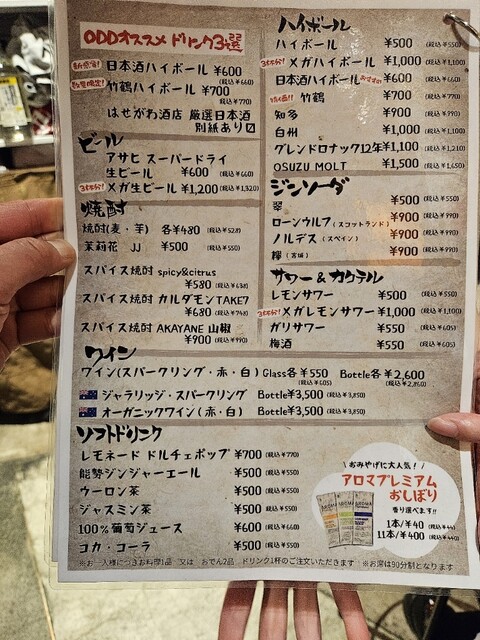 ODDオススメ ドリンク3選
新感覚! 日本酒ハイボール ¥600 (税込¥660)
数量限定! 竹鶴ハイボール ¥700 (税込¥770)
はせがわ酒店 厳選日本酒
別紙あり
ビール
アサヒ スーパードライ
生ビール ¥600 (税込¥660)
3杯分! メガ生ビール ¥1,200 (税込¥1,320)
焼酎
焼酎(麦・芋) 各¥480 (税込¥528)
茉莉花 JJ ¥500 (税込¥550)
スパイス焼酎 spicy&citrus
¥580 (税込¥638)
スパイス焼酎 カルダモンTAKE7
¥680 (税込¥748)
スパイス焼酎 AKAYANE 山椒
¥900 (税込¥990)
ハイボール
ハイボール ¥500 (税込¥550)
3杯分! メガハイボール ¥1,000 (税込¥1,100)
日本酒ハイボール おすすめ ¥600 (税込¥660)
竹鶴 ¥700 (税込¥770)
知多 ¥900 (税込¥990)
白州 ¥1,000 (税込¥1,100)
グレンドロナック12年 ¥1,100 (税込¥1,210)
OSUZU MOLT ¥1,500 (税込¥1,650)
ジンソーダ
翠 ¥500 (税込¥550)
ローンウルフ (スコットランド) ¥900 (税込¥990)
ノルデス (スペイン) ¥900 (税込¥990)
¥900 (税込¥990)
サワー&カクテル
レモンサワー ¥500 (税込¥550)
3杯分! メガレモンサワー ¥1,000 (税込¥1,100)
ガリサワー ¥550 (税込¥605)
梅酒 ¥550 (税込¥605)
ワイン
ワイン(スパークリング・赤・白) Glass各¥550 (税込¥605) Bottle各¥2,600 (税込¥2,860)
ジャラリッジ・スパークリング Bottle¥3,500 (税込¥3,850)
オーガニックワイン(赤・白) Bottle¥3,500 (税込¥3,850)
ソフトドリンク
レモネード ドルチェポップ ¥700 (税込¥770)
能勢ジンジャーエール ¥500 (税込¥550)
ウーロン茶 ¥500 (税込¥550)
ジャスミン茶 ¥500 (税込¥550)
100%葡萄ジュース ¥600 (税込¥660)
コカ・コーラ ¥500 (税込¥550)
おみやげに大人気!
アロマプレミアム
おしぼり
香り選べます!!
1本/¥40 (税込¥44)
11本/¥400 (税込¥440)
AROMA
※お一人様につきお料理1品 又は おでん2品 ドリンク1杯のご注文いただきます ※お席は90分制となります